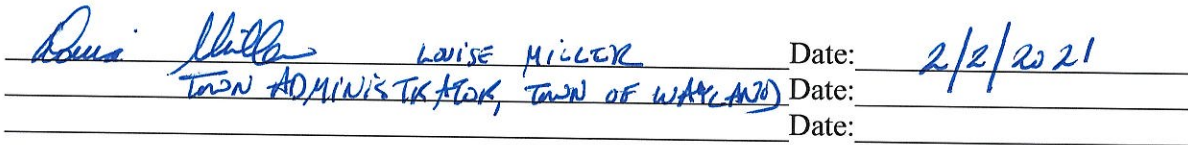 Louise Miller LOUISE MILLER Date: 2/2/2021
TOWN ADMINISTRATOR, TOWN OF WAYLAND Date:
Date: